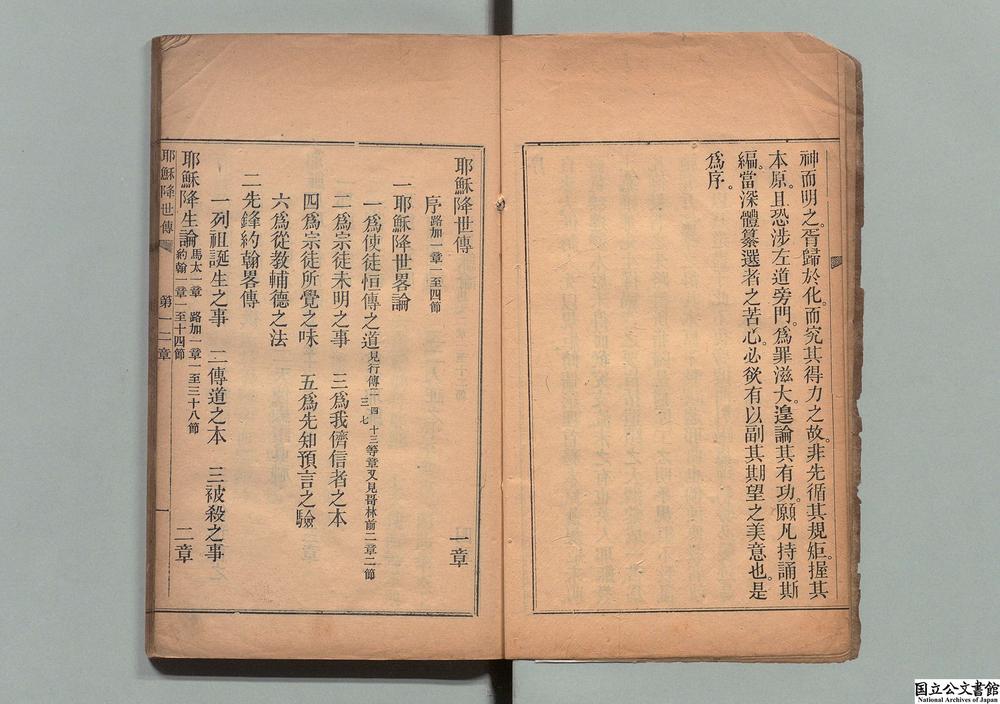 神而明之。胥歸於化。而究其得力之故。非先循其規矩。握其
本原。且恐涉左道旁門。爲罪滋大。遑論其有功。願凡持誦斯
編。當深體纂選者之苦心。必欲有以副其期望之美意也。是
爲序。
耶穌降世傳 一章
序 路加一章一至四節
一耶穌降世畧論
一爲使徒恒傳之道 見行傳 三 四 七 十三等章又見哥林前二章二節
二爲宗徒未明之事 三爲我儕信者之本
四爲宗徒所覺之味 五爲先知預言之驗
六爲從教輔德之法
二先鋒約翰畧傳
一列祖誕生之事 二傳道之本 三被殺之事
耶穌降生論 馬太一章 路加一章一至三十八節 約翰一章一至十四節 二章
耶穌降世傳 第一二章 一
国立公文書館
National Archives of Japan